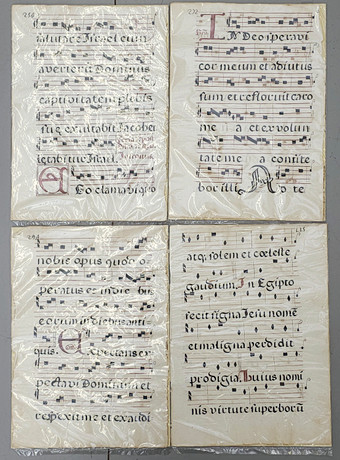 salutare Israel cum
averterit Dominus
captivitatem plebis
suę exultabit Iacob et
letabitur Israel.
Ego clamavi quo
In Deo speravit
cor meum et adiutus
sum et refloruit caro
me a et ex volun
tate me a confite
bor illi. Ad te
nobis opus quod o-
peratus es in die
eorum in diebus anti-
quis. Expectans ex
pectavi Dominum et
respexit me et exaudi
atq; solem et coeleste
gaudium. In Egipto
fecit signa Iesu nomē
et maligna perdidit
prodigia. Huius nomi
nis virtute superborū